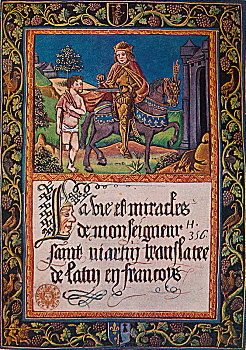 La vie et miracles
de monseigneur
saint martin translatee
de latin en francoys
H
356